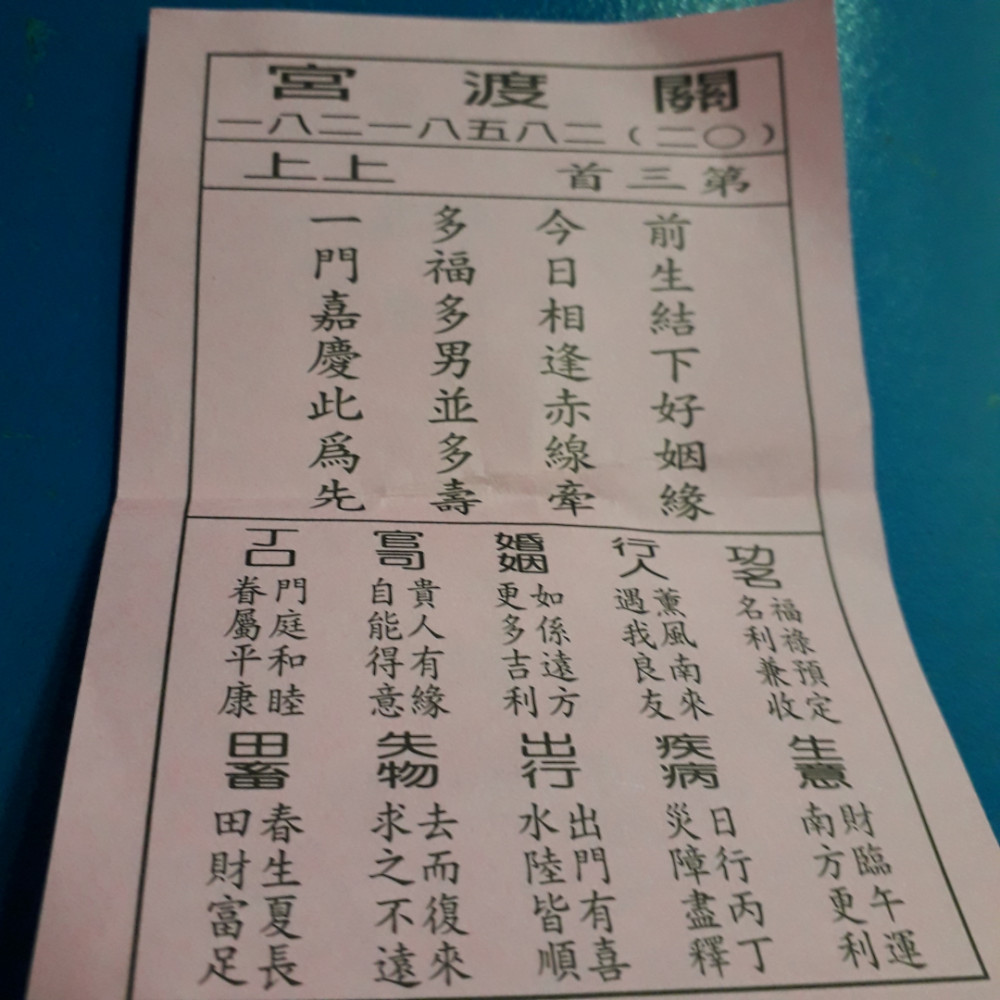 關渡宮
（〇二）二八五八一二八一
第三首
上上
前生結下好姻緣
今日相逢赤線牽
多福多男並多壽
一門嘉慶此為先
功名
福祿預定
名利兼收
行人
薰風南來
遇我良友
婚姻
如係遠方
更多吉利
官司
貴人有緣
自能得意
丁口
門庭和睦
眷屬平康
生意
財臨午運
南方更利
疾病
日行丙丁
災障盡釋
出行
出門有喜
水陸皆順
失物
去而復來
求之不遠
田畜
春生夏長
田財富足